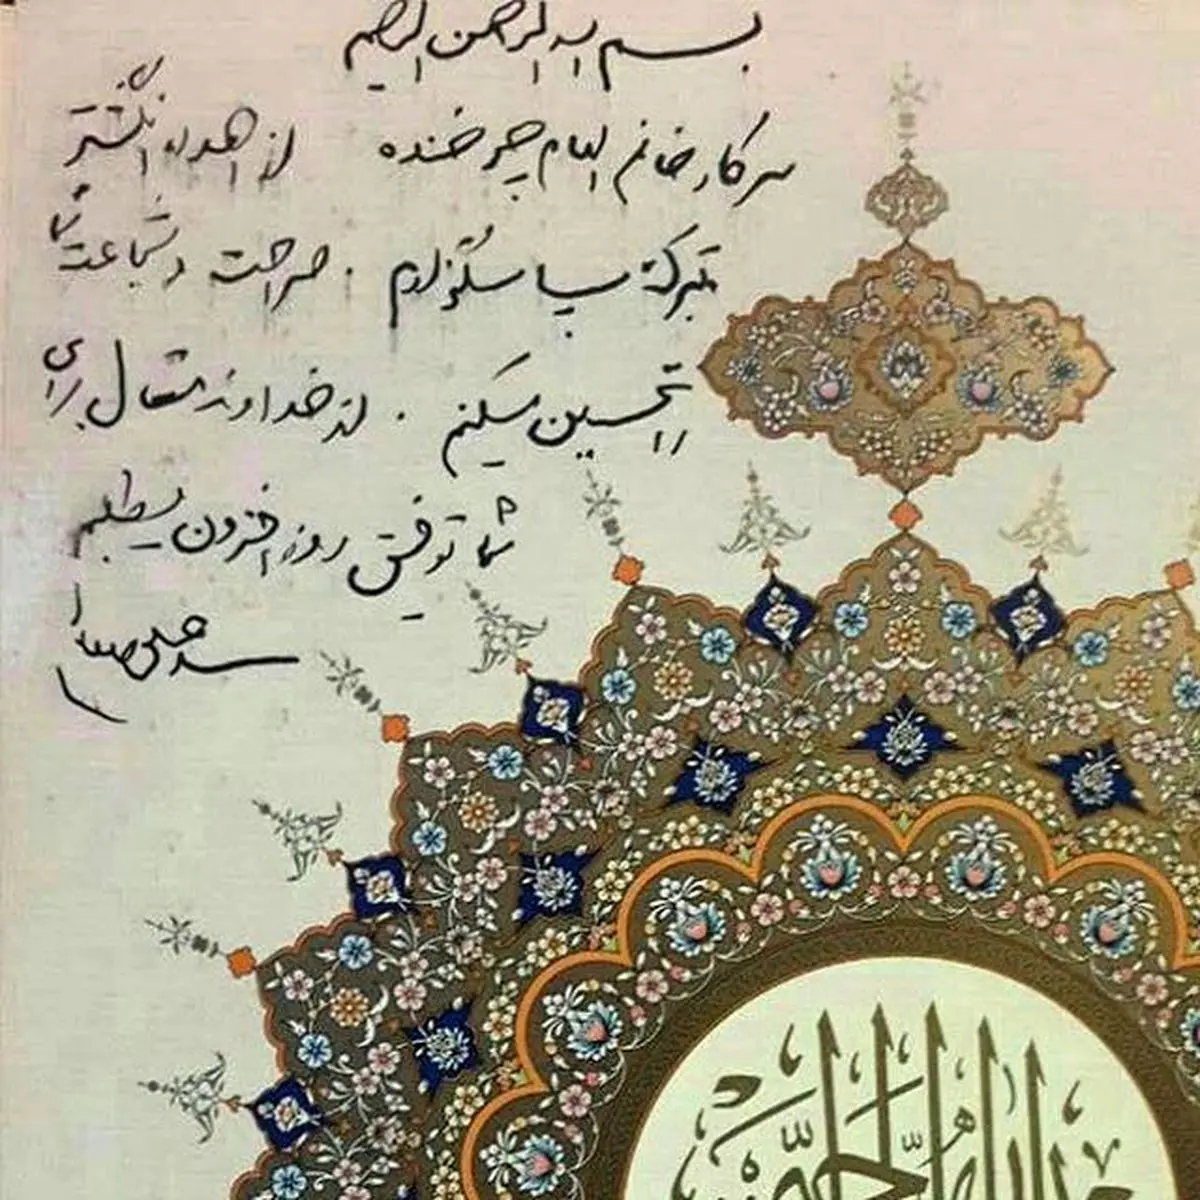 بسم الله الرحمن الرحیم
سرکار خانم الهام چرخنده از اهداء انگشتری
تبرک شده سپاسگزارم. صراحت و شجاعت شما
را تحسین میکنم. از خداوند متعال برای
شما توفیق روز افزون میطلبم
سید علی
بسم الله الرحمن